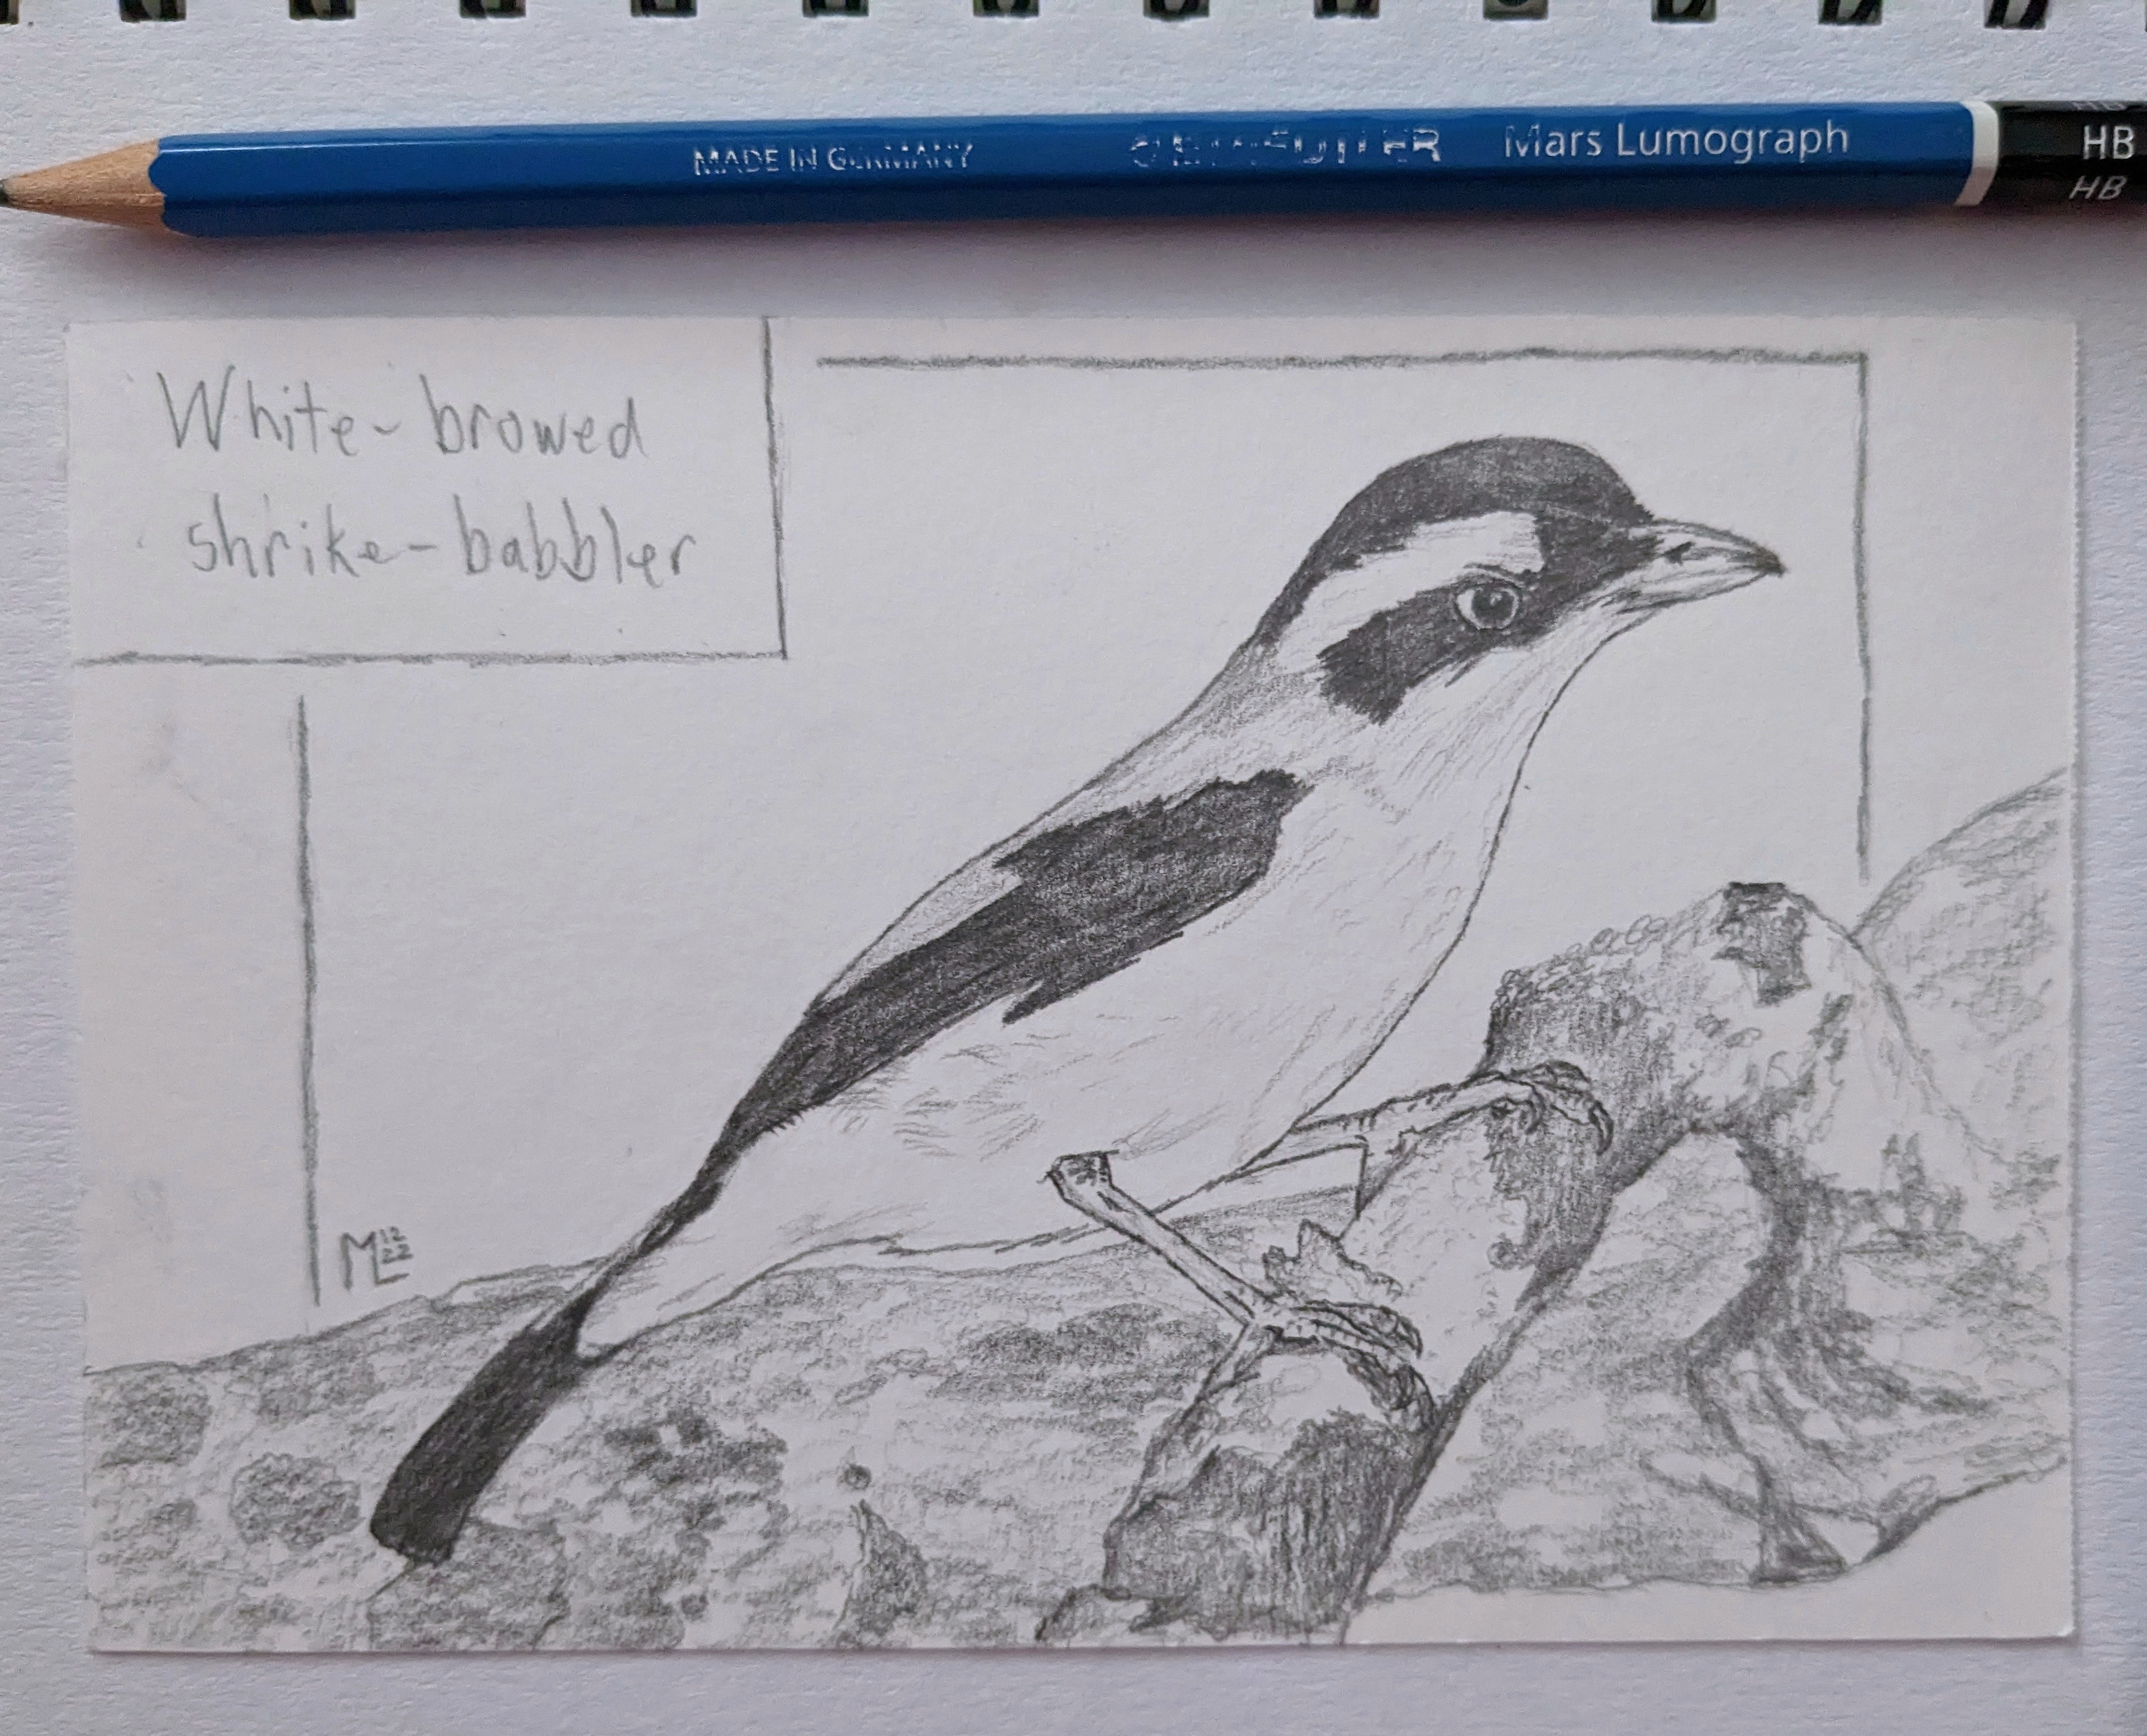 MADE IN GERMANY STAEDTLER Mars Lumograph HB
HB
White-browed
shrike-babbler
ML 12
22